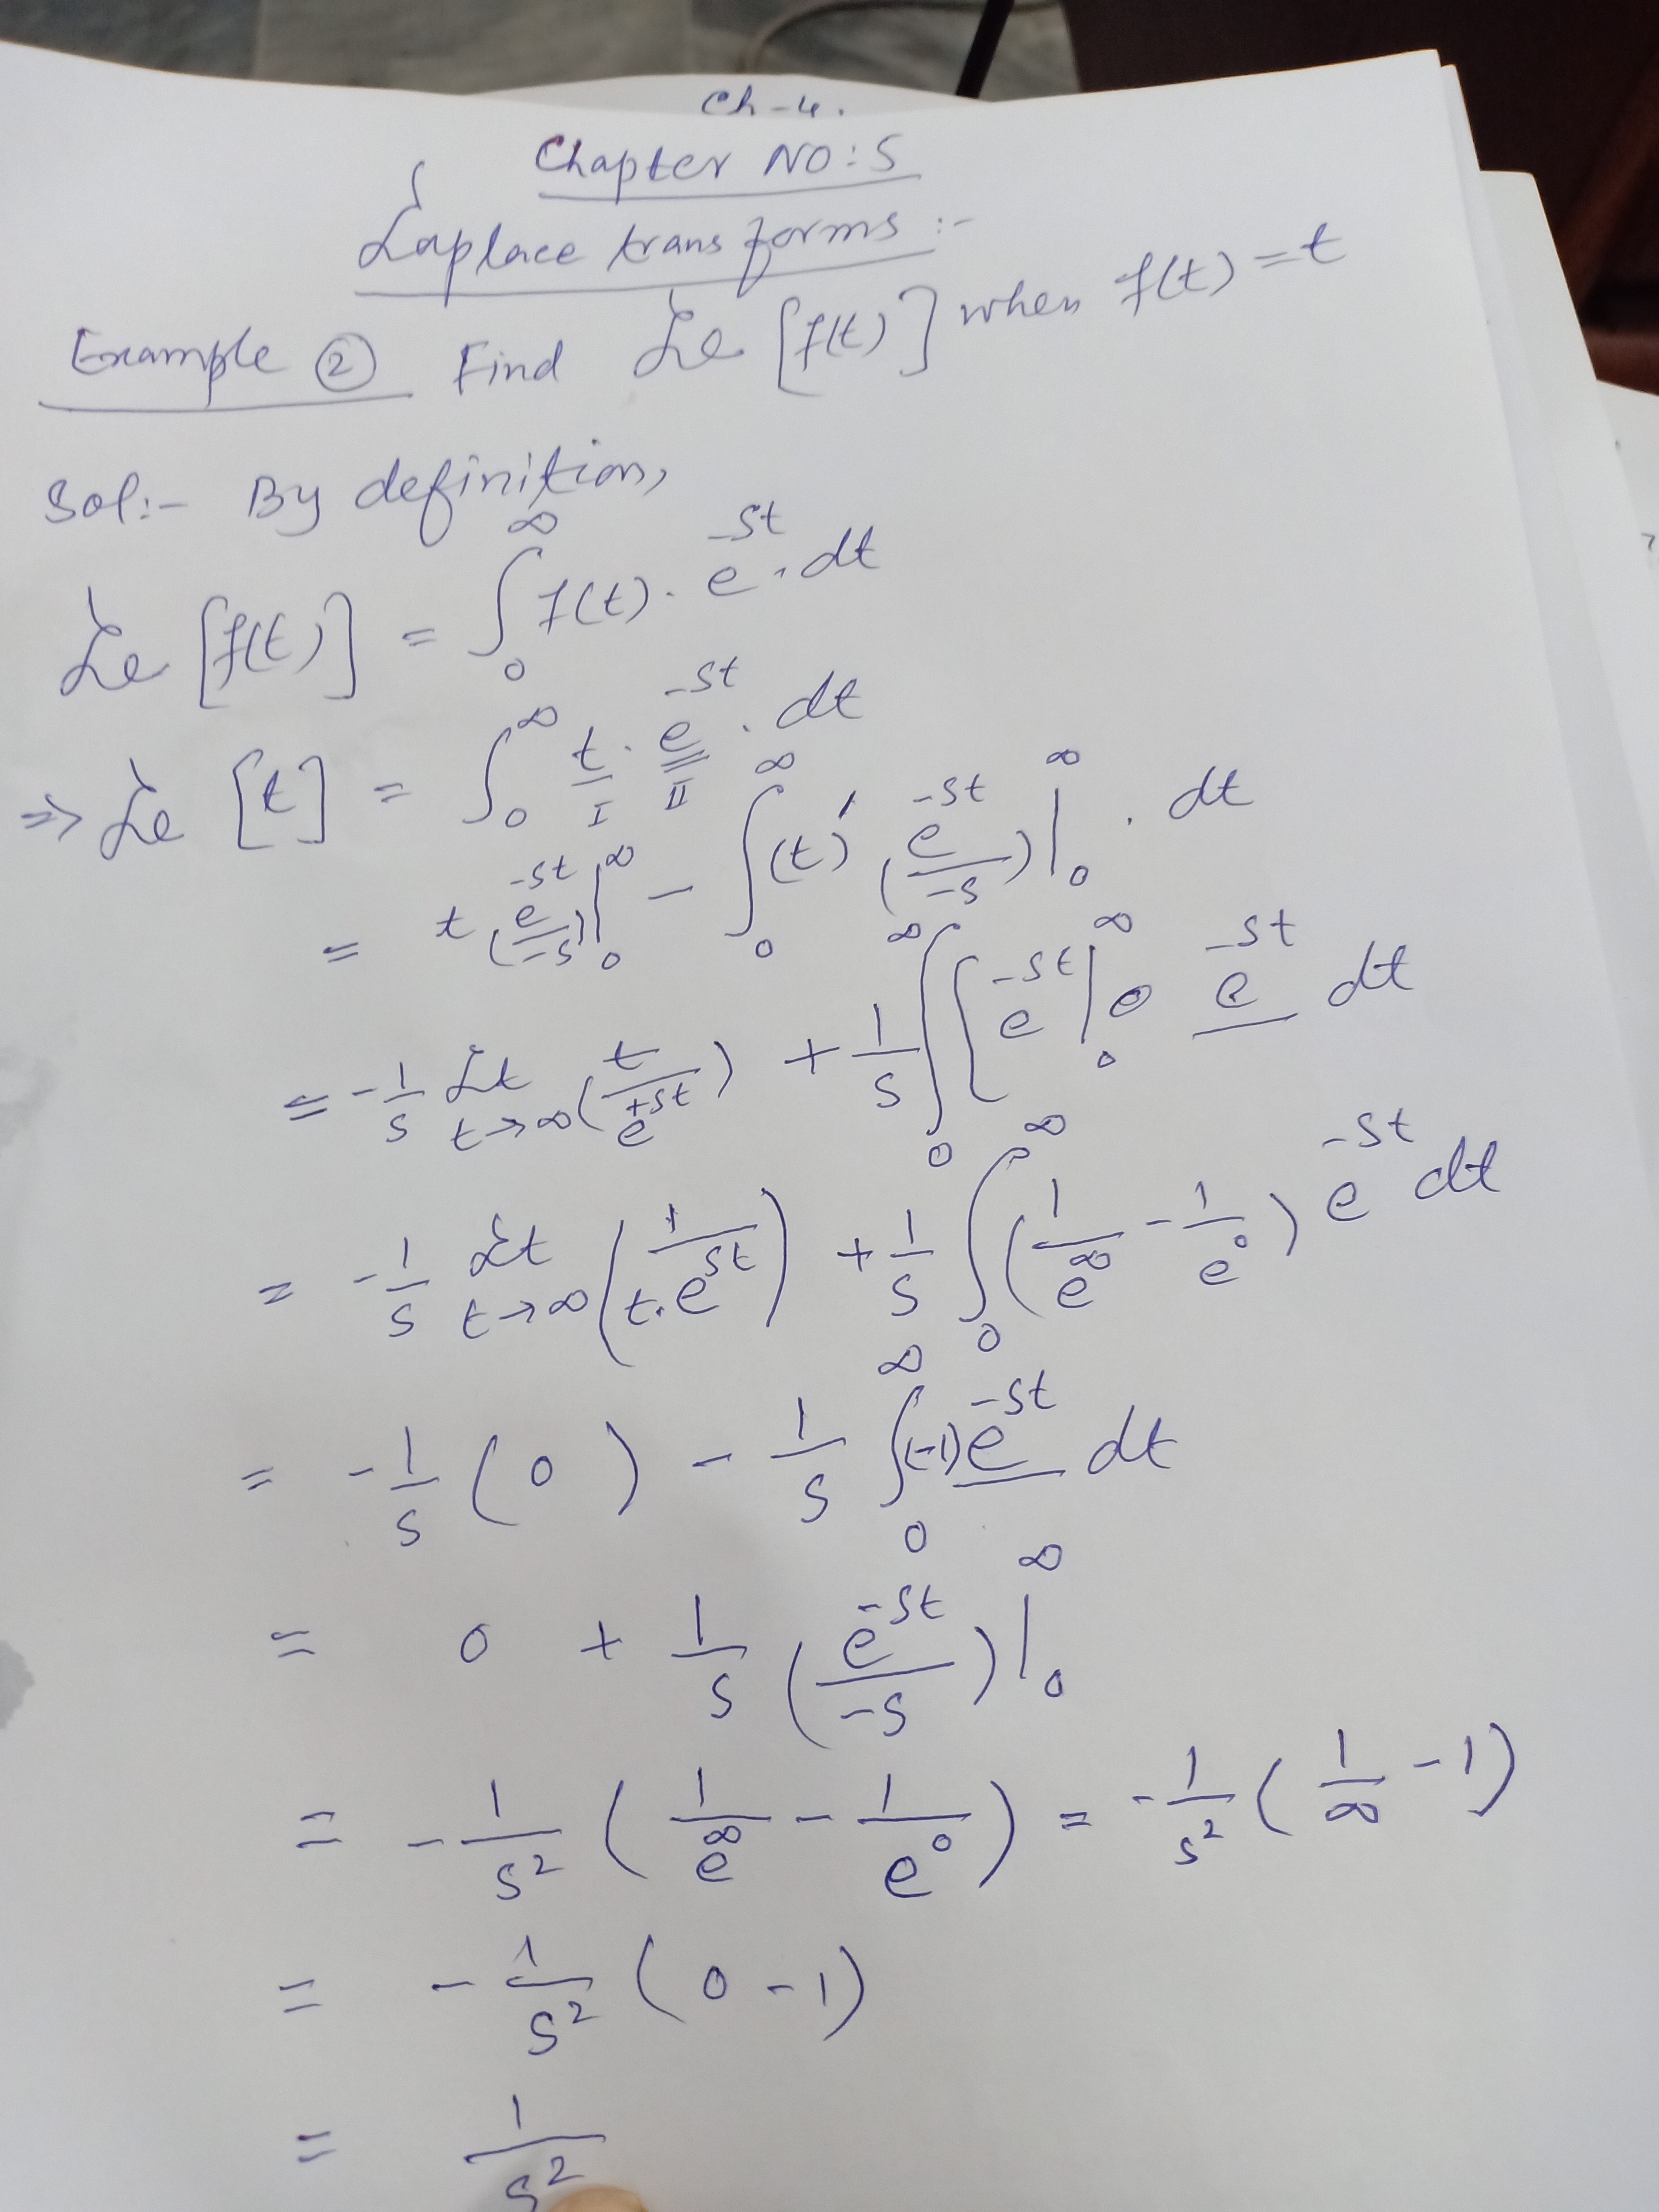 Ch-4.
Chapter NO:5
Laplace transforms:-
Example ② Find ℒe [f(t)] when f(t) = t
Sol:- By definition,
ℒe [f(t)] = ∫₀^∞ f(t) . e^{-st} . dt
⇒ ℒe [t] = ∫₀^∞ t . e^{-st} . dt
I II
= t (e^{-st}/-s)|₀^∞ - ∫₀^∞ (t)' (e^{-st}/-s)|₀^∞ . dt
= -1/s Lt t→∞ (t/e^{+st}) + 1/s ∫₀^∞ [e^{-st}|₀^∞ e^{-st} dt
= -1/s Lt t→∞ (1/t.e^{st}) + 1/s ∫₀^∞ (1/e^∞ - 1/e^0) e^{-st} dt
= -1/s (0) - 1/s ∫₀^∞ (-1) e^{-st} dt
= 0 + 1/s (e^{-st}/-s)|₀^∞
= -1/s² (1/e^∞ - 1/e^0) = -1/s² (1/∞ - 1)
= -1/s² (0 - 1)
= 1/s²